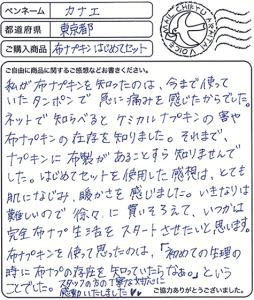 ペンネーム カナエ
都道府県 東京都
ご購入商品 布ナプキンはじめてセット
ご自由に商品に関するご感想などお書きください。
私が布ナプキンを知ったのは、今まで使って
いたタンポンで急に痛みを感じたからでした。
ネットで知らべるとケミカルナプキンの害や
布ナプキンの存在を知りました。それまで、
ナプキンに布製があることすら知りませんで
した。はじめてセットを使用した感想は、とても
肌になじみ、暖かさを感じました。いきなりは
難しいので徐々に買いそろえて、いつかは
完全布ナプ生活をスタートさせたいと思います。
布ナプキンを使って思ったのは、「初めての生理の
時に布ナプの存在を知っていたらなぁ。」という
ことでした。スタッフの方の丁寧な対応に
感動いたしました♥♥
ご協力ありがとうございました。